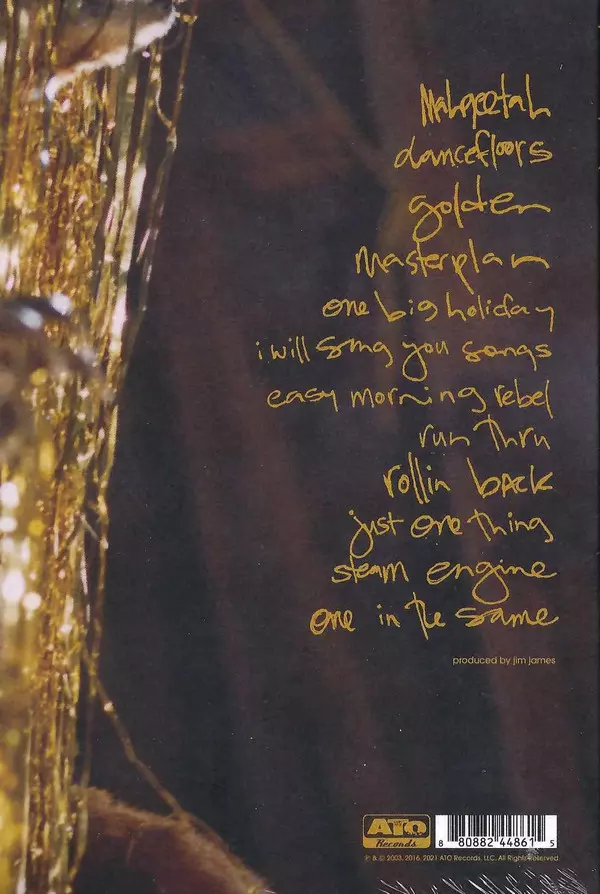 Mahgeetah
dancefloors
golden
masterplan
one big holiday
i will sing you songs
easy morning rebel
run thru
rollin back
just one thing
steam engine
one in the same
produced by jim james
ATO
Records
8 80882 44861 5
℗ & © 2003, 2016, 2021 ATO Records, LLC. All Rights Reserved.